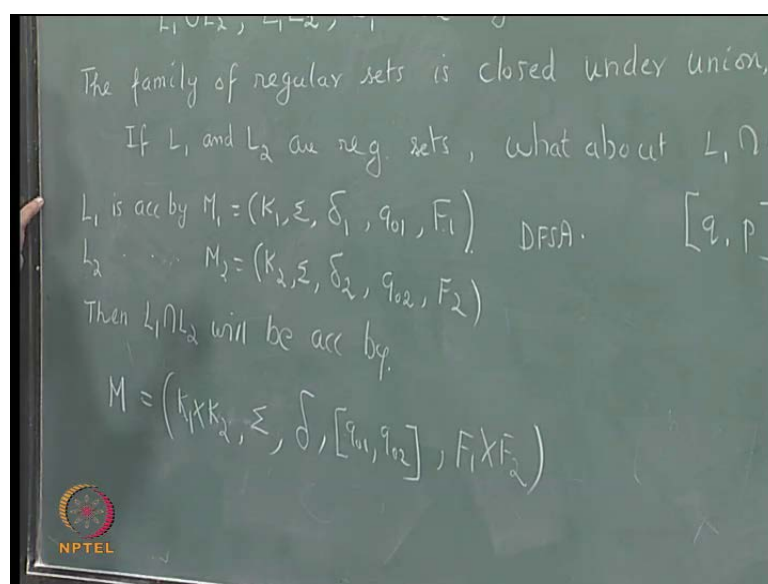 L₁∪L₂, L₁L₂,
The family of regular sets is closed under union,
If L₁ and L₂ are reg. sets, what about L₁ ∩
L₁ is acc by M₁ = (K₁, Σ, δ₁, q₀₁, F₁) DFSA. [q, p]
L₂ ..... M₂ = (K₂, Σ, δ₂, q₀₂, F₂)
Then L₁∩L₂ will be acc by.
M = (K₁×K₂, Σ, δ, [q₀₁, q₀₂], F₁×F₂)
NPTEL